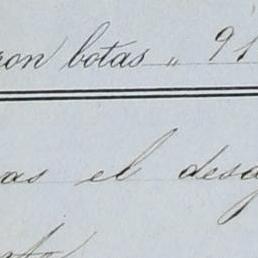 ron botas " 91
as el desg